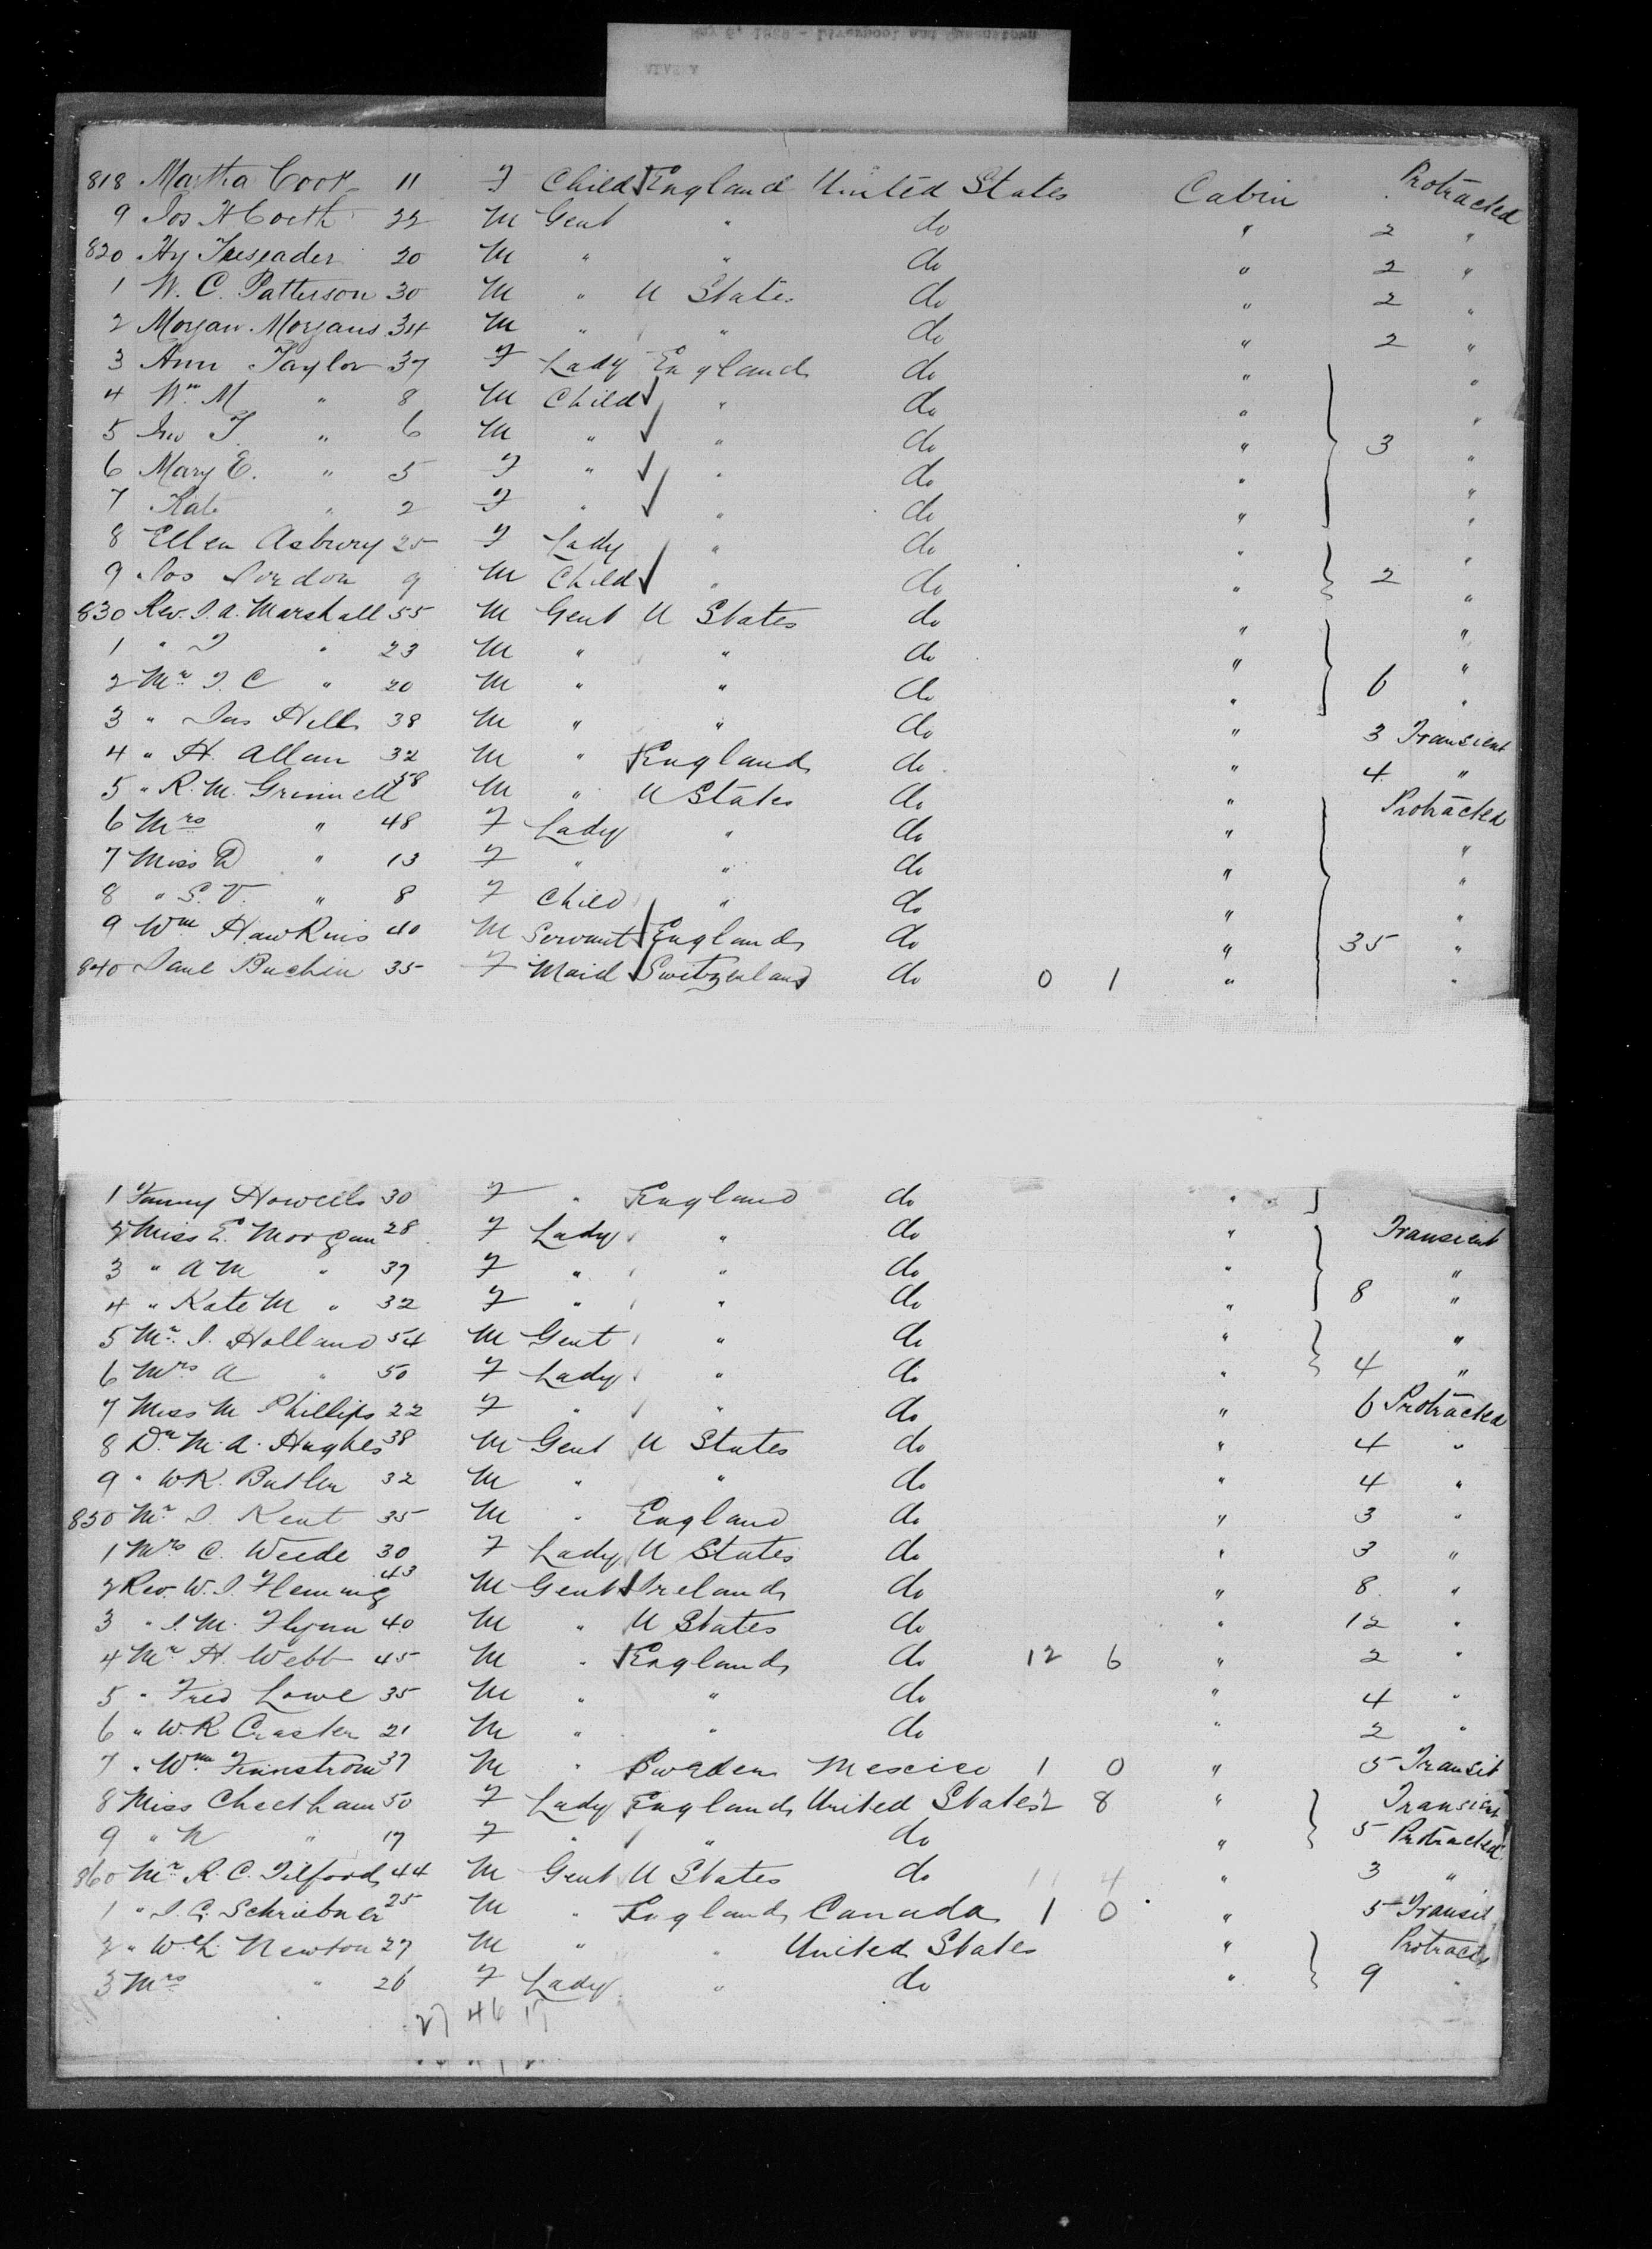 818 Martha Cook 11 F Child England United States Cabin Protracted
9 Jos H Corth 22 M Gent " do " 2 "
820 Hy Treseader 20 M " " do " 2 "
1 W. C. Patterson 30 M " U States do " 2 "
2 Morgan Morgans 34 M " " do " 2 "
3 Ann Taylor 37 F Lady England do " "
4 Wm. M " 8 M Child " do " "
5 Jno T. " 6 M " " do " 3 "
6 Mary E. " 5 F " " do " "
7 Kate " 2 F " " do " "
8 Ellen Asbury 25 F Lady " do " "
9 Jos Jordon 9 M Child " do " 2 "
830 Rev. J. A. Marshall 55 M Gent U States do " "
1 " J " 23 M " " do " "
2 Mr. J. C " 20 M " " do " 6 "
3 " Jas Hill 38 M " " do " 3 Transient
4 " H. Allan 32 M " England do " 4 "
5 " R. M. Grinnell 58 M " U States do " Protracted
6 Mrs " 48 F Lady " do " "
7 Miss D " 13 F " " do " "
8 " S. V. " 8 F Child " do " "
9 Wm Hawkins 40 M Servant England do " 35 "
840 Jane Buchin 35 F Maid Switzerland do 0 1 " "
1 Fanny Howells 30 F " England do "
2 Miss E. Morgan 28 F Lady " do " Transient
3 " A M " 37 F " " do " "
4 " Kate M " 32 F " " do " 8 "
5 Mr. J. Holland 54 M Gent " do " "
6 Mrs A " 50 F Lady " do " 4 "
7 Miss M Phillips 22 F " " do " 6 Protracted
8 Dr M. A. Hughes 38 M Gent U States do " 4 "
9 " W R. Butler 32 M " " do " 4 "
850 Mr J. Kent 35 M " England do " 3 "
1 Mrs C. Weede 30 F Lady U States do " 3 "
2 Rev. W. J. Fleming 43 M Gent Ireland do " 8 "
3 " J. M. Flynn 40 M " U States do " 12 "
4 Mr H. Webb 45 M " England do 12 6 " 2 "
5 " Fred Lowe 35 M " " do " 4 "
6 " W. R Craster 21 M " " do " 2 "
7 " Wm Finnstrom 37 M " Sweden Mexico 1 0 " 5 Transit
8 Miss Cheetham 50 F Lady England United States 2 8 " Transient
9 " N " 17 F " " do " 5 Protracted
860 Mr R. C. Tilford 44 M Gent U States do 11 4 " 3 "
1 " J. G. Schriebner 25 M " England Canada 1 0 " 5 Transit
2 " W. L. Newton 27 M " " United States " Protracted
3 Mrs " 26 F Lady " do " 9 "
27 46 17